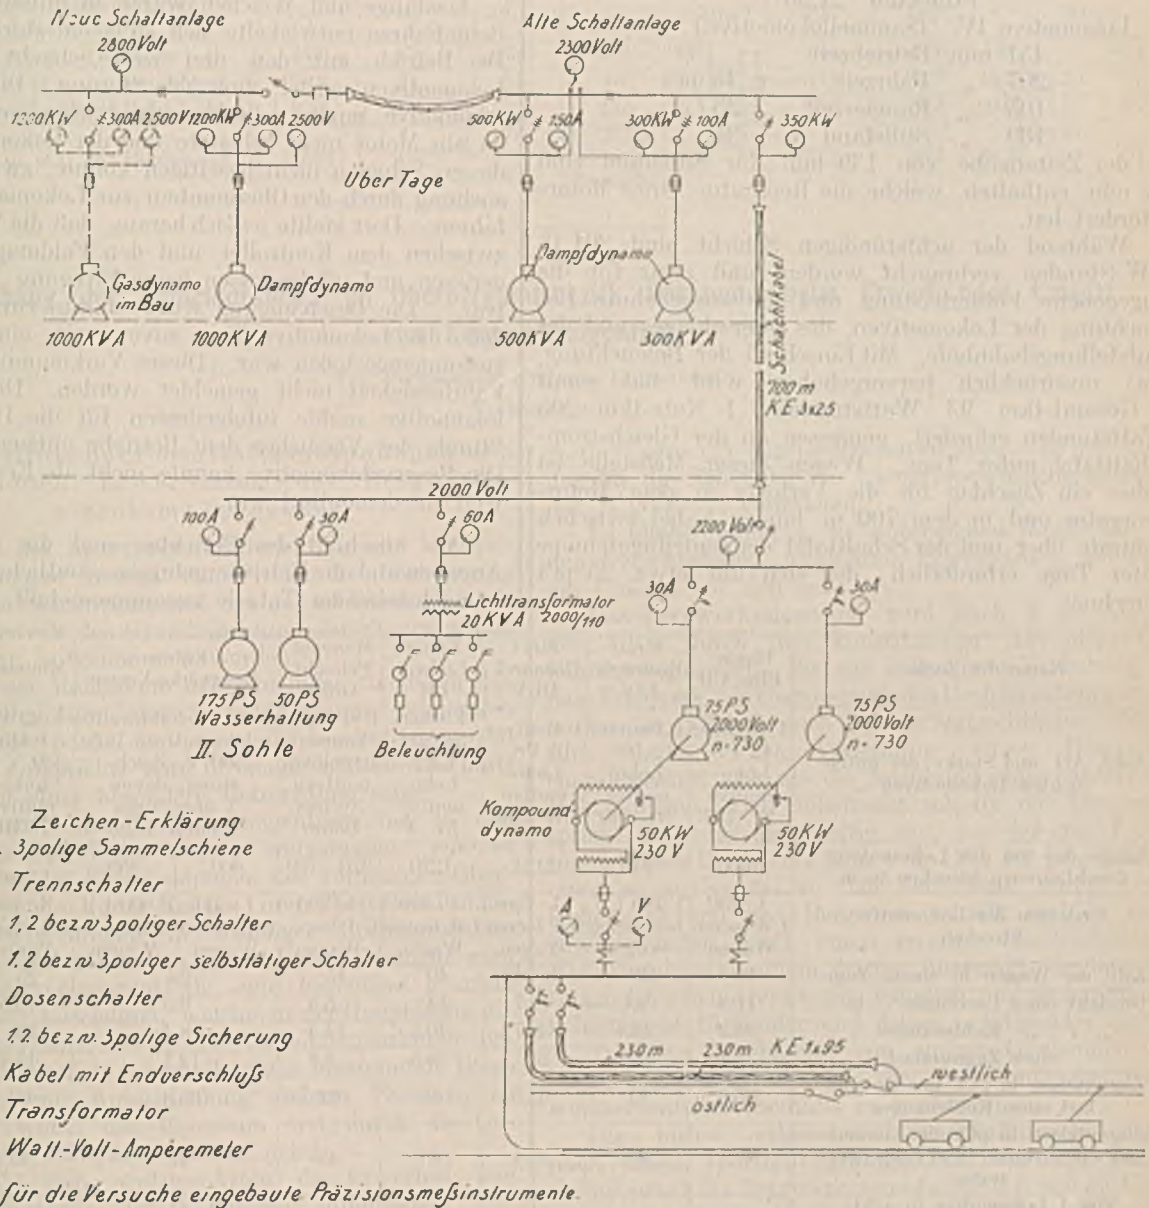 Neue Schaltanlage
2800 Volt
Alte Schaltanlage
2300 Volt
1200KW 300A 2500V 1200KW 300A 2500V
500KW 150A 300KW 100A 350KW
Über Tage
Gasdynamo
im Bau
Dampfdynamo
Dampfdynamo
1000KVA 1000KVA 500KVA 300KVA
Schachtkabel
700m
KE 3x25
2000 Volt
100A 30A 60A
2200 Volt
30A 30A
Lichttransformator
20KVA 2000/110
175PS 50PS
Wasserhaltung
II. Sohle
Beleuchtung
75PS
2000Volt
n-730
75PS
2000Volt
n-730
Kompound-
dynamo
50KW
230V
50KW
230V
A V
230m 230m KE 1x95
westlich
östlich
Zeichen-Erklärung
3polige Sammelschiene
Trennschalter
1,2 bezw 3poliger Schalter
1.2 bezw 3poliger selbsttätiger Schalter
Dosenschalter
1.2. bezw. 3polige Sicherung
Kabel mit Endverschluß
Transformator
Watt-Volt-Ampèremeter
für die Versuche eingebaute Präzisionsmeßinstrumente.